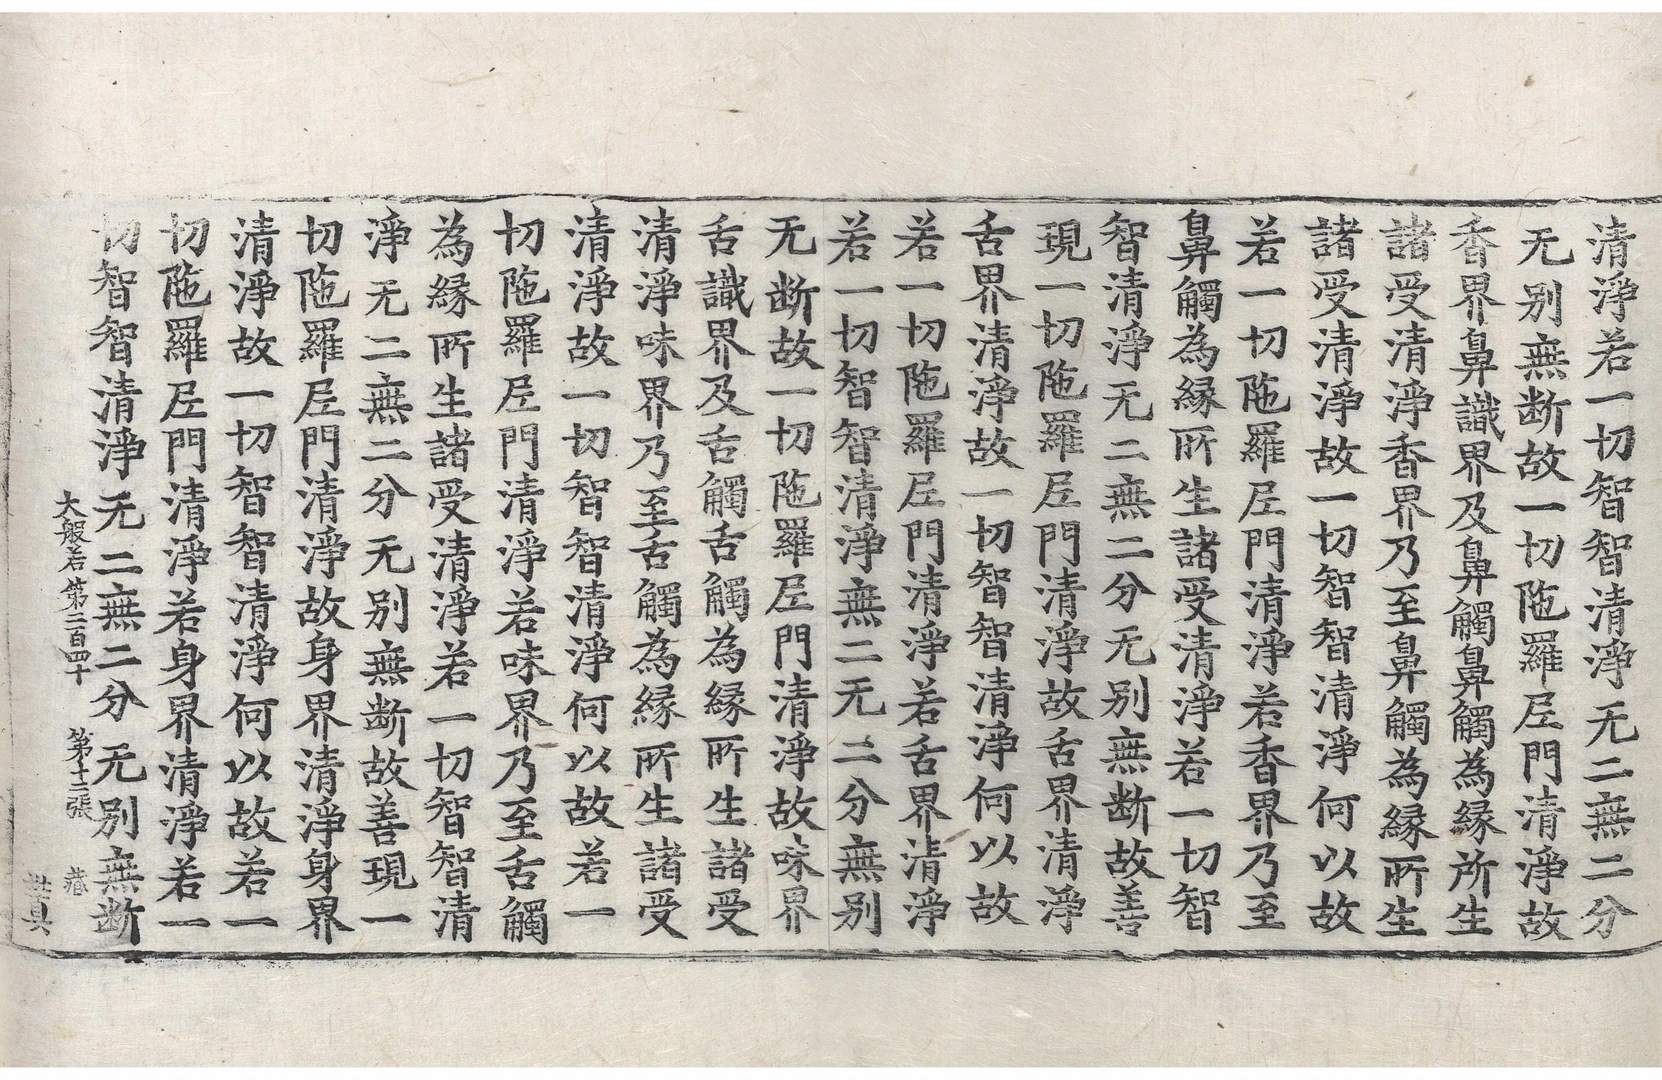 清淨若一切智智清淨无二無二分
无別無断故一切陁羅𡰱門清淨故
香界鼻識界及鼻觸鼻觸為緣所生
諸受清淨香界乃至鼻觸為緣所生
諸受清淨故一切智智清淨何以故
若一切陁羅𡰱門清淨若香界乃至
鼻觸為緣所生諸受清淨若一切智
智清淨无二無二分无別無断故善
現一切陁羅𡰱門清淨故舌界清淨
舌界清淨故一切智智清淨何以故
若一切陁羅𡰱門清淨若舌界清淨
若一切智智清淨無二无二分無別
无断故一切陁羅𡰱門清淨故味界
舌識界及舌觸舌觸為緣所生諸受
清淨味界乃至舌觸為緣所生諸受
清淨故一切智智清淨何以故若一
切陁羅𡰱門清淨若味界乃至舌觸
為緣所生諸受清淨若一切智智清
淨无二無二分无別無断故善現一
切陁羅𡰱門清淨故身界清淨身界
清淨故一切智智清淨何以故若一
切陁羅𡰱門清淨若身界清淨若一
切智智清淨无二無二分无別無断
大般若第二百四十 第十二張